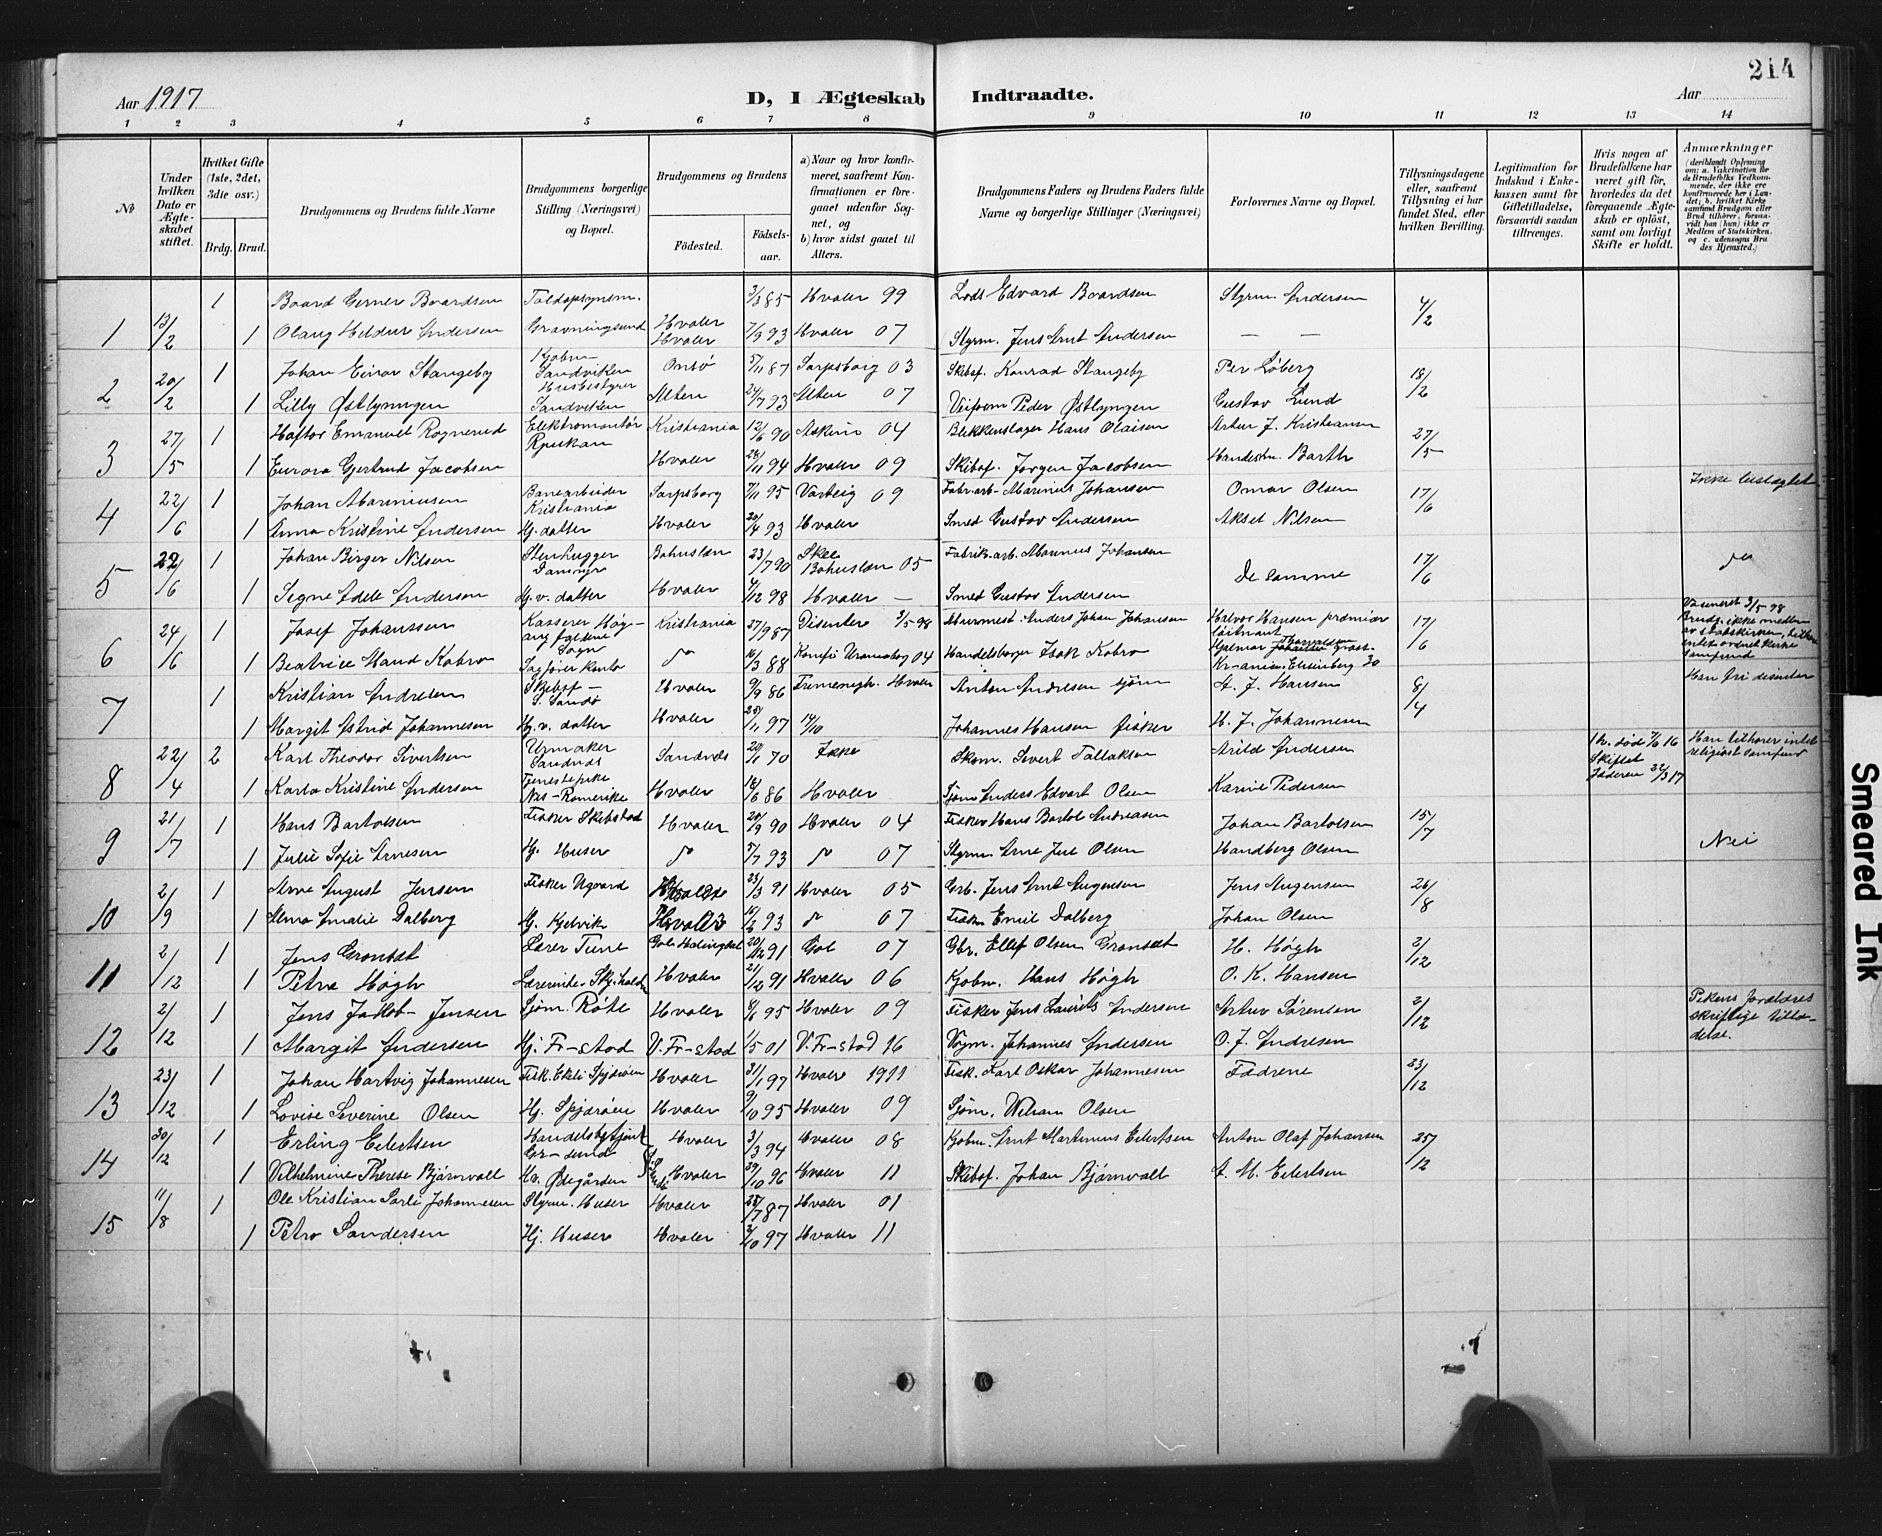 214
Aar 1917
D, I Ægteskab Indtraadte.
Aar
1 2 3 4 5 6 7 8 9 10 11 12 13 14
No
Under hvilken Dato er Ægteskabet stiftet.
Hvilket Gifte (1ste, 2det, 3die osv.)
Brdg. Brud.
Brudgommens og Brudens fulde Navne
Brudgommens borgerlige Stilling (Næringsvei) og Bopæl.
Brudgommens og Brudens
Födested.
Födselsaar.
a) Naar og hvor konfirmeret, saafremt Konfirmationen er foregaaet udenfor Sognet, og
b) hvor sidst gaaet til Alters.
Brudgommens Faders og Brudens Faders fulde Navne og borgerlige Stillinger (Næringsvei)
Forlovernes Navne og Bopæl.
Tillysningsdagene eller, saafremt Tillysning ei har fundet Sted, efter hvilken Bevilling.
Legitimation for Indskud i Enkekassen samt for Giftetilladelse, forsaavidt saadan tiltrænges.
Hvis nogen af Brudefolkene har været gift för, hvorledes da det foregaaende Ægteskab er oplöst, samt om lovligt Skifte er holdt.
Anmærkninger
(deriblandt Oplysning om: a. Vakcination for de Brudefolks Vedkommende, der ikke ere konfirmerede her i Landet; b. hvilket Kirkesamfund Brudgom eller Brud tilhörer, forsaavidt han (hun) ikke er Medlem af Statskirken, og c. udensogns Brudes Hjemsted.)
1 13/2 1 Baard Gerner Baardsen Toldopsynsm. Hvaler 3/3 85 Hvaler 99 Lods Edvard Baardsen Styrm. Andersen 4/2
1 Olaug Heldur Andersen Gravningsund Hvaler 7/9 93 Hvaler 07 Styrm. Jens Arnt Andersen — —
2 20/2 1 Johan Einar Stangeby Kjøbm Sandviken Onsø 5/11 87 Sarpsborg 03 Skibsf. Konrad Stangeby Per Løberg 18/2
1 Lilly Østlyngen Husbestyrer Sandviken Alten 24/7 93 Alten 07 Peder Østlyngen Gustav Lund
3 27/5 1 Haftor Emanuel Rognerud Elektromontør Rjukan Kristiania 12/6 90 Askim 04 Blikkenslager Hans Olaisen Artur J. Kristiansen 27/5
1 Eurora Gjertrud Jacobsen Hvaler 28/11 94 Hvaler 09 Skibsf. Jørgen Jacobsen Handelsm. Barth
4 22/6 1 Johan Mariniusen Banearbeider Kristiania Sarpsborg 7/11 95 Varteig 09 Fabr.arb. Marinius Johansen Omar Olsen 17/6 Ikke beslægtet
1 Anna Kristine Andersen Hj. datter Hvaler 20/4 93 Hvaler Smed Gustav Andersen Aksel Nilsen
5 22/6 1 Johan Birger Nilsen Stenhugger Dammyr Bohuslæn 23/7 90 Skee Bohuslæn 05 Fabrik.arb. Marinus Johansen De samme 17/6
1 Signe Adele Andersen Hj. v. datter Hvaler 4/12 98 Hvaler — Smed Gustav Andersen
6 24/6 1 Josef Johanssen Kasserer Kristiania 27/9 87 Disentere 3/5 98 Murmest. Anders Johan Johansen Halvor Hansen premiærløitnant 17/6 Vacineret 3/5 98 Brudg. ikke medlem av statskirken, tilhører intet ordnet kirkesamfund
1 Beatrice Maud Kobro Sagfører kontor 16/3 88 Konfi. Uranienborg 04 Handelsborger Isak Kobro Hjelmar
7 1 Kristian Andresen Skibsf — S. Sandø Hvaler 9/9 86 Frimenigh. Hvaler Anton Andresen sjøm A. J. Hansen 8/4 Han fri disenter
1 Margit Astrid Johannesen Hj. v. datter Hvaler 25/1 97 14/10 Johannes Hansen fisker H. J. Johannesen
8 22/4 2 Karl Theodor Sivertsen Urmaker Sandnæs Sandnæs 20/1 70 Ikke Skom. Severt Tallaksen Arild Andersen 1 h. død 7/6 16 Skiftet Jæderen 22/3 17 Han tilhører intet religiøst samfund
1 Karla Kristine Andersen Tjenestepike Nes-Romerike Hvaler 18/6 86 Hvaler Sjøm Anders Edvart Olsen Karine Pedersen
9 21/7 1 Hans Bartolsen Fisker Skibstad Hvaler 20/9 90 Hvaler 04 Fisker Hans Bartol Andreasen Johan Bartolsen 15/7 Nei
1 Julie Sofie Arnesen Hj. Huser 5/7 93 07 Styrm. Arne Juel Olsen Handberg Olsen
10 2/9 1 Arne August Jensen Fisker Ugaard Hvaler 23/3 91 Hvaler 05 Grb. Jens Arnt Augensen Jens Augensen 26/8
1 Alma Amalie Dalberg Hj. Kjelvik Hvaler 16/2 93 07 Fisker Emil Dalberg Johan Olsen
11 2/12 1 Jens Grønsæt Lærer Tune Gol Hallingdal 20/12 91 Gol 07 Gbr. Ellef Olsen Grønsæt H. Høgh 2/12
1 Petra Høgh Lærerinde Skj.halden Hvaler 21/12 91 Hvaler 06 Kjøbm. Hans Høgh O. K. Hansen
12 2/12 1 Jens Jakob Jensen Sjøm. Røte Hvaler 8/6 95 Hvaler 09 Fisker Jens Laurits Andersen Artur Sørensen 2/12 Pikens forældres skriftlige tilladelse.
1 Margit Andersen Hj. Fr-stad V. Fr-stad 1/5 01 V. Fr-stad 16 Vogm. Johannes Andersen O. J. Andresen
13 23/12 1 Johan Hartvig Johannesen Fisk. Ekeli Spjærøen Hvaler 31/1 97 Hvaler 1911 Fisk. Karl Oskar Johannesen Fædrene 23/12
1 Lovise Severine Olsen Hj. Spjærøen Hvaler 9/10 95 Hvaler 09 Sjøm. Wiliam Olsen
14 30/12 1 Erling Eilertsen Handelsbetjent Gr-sund Hvaler 3/3 94 Hvaler 08 Kjøbm. Arnt Martinius Eilertsen Anton Olaf Johansen 25/12
1 Vilhelmine Therese Bjørnvall Hv. Ødegården Hvaler 29/10 96 Hvaler 11 Skibsf. Johan Bjørnvall A. M. Eilertsen
15 11/8 1 Ole Kristian Sarli Johannesen Styrm. Huser Hvaler 28/7 87 Hvaler 01
1 Petra Sandersen Hj. Huser Hvaler 2/10 97 Hvaler 11
Smeared Ink